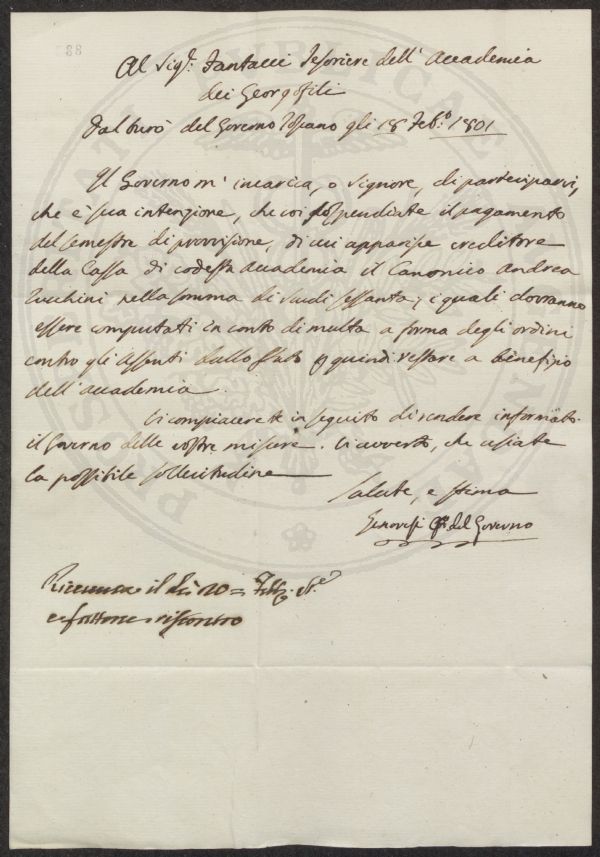 88
Al Sigr: Fantacci Tesoriere dell' Accademia
dei Georgofili
Dal burò del Governo Tosano gli 18 Febo: 1801
Il Governo m' incarica, o Signore, di parteciparvi,
che è sua intenzione, che voi sospendiate il pagamento
del semestre di provvisione, di cui apparisce creditore
della Cassa di codesta Accademia il Canonico Andrea
Zucchini nella somma di scudi sessanta, i quali dovranno
essere computati in conto di multa a forma degli ordini
contro gli Assenti dallo stato e quindi restare a benefizio
dell' accademia.
Vi compiacerete in seguito di rendere informato
il Governo delle vostre misure. Vi avverto, che usiate
la possibile sollecitudine
Salute, e stima
Genovesi del Governo
Ricevuta il dì 20 = Febb.
e fattone riscontro